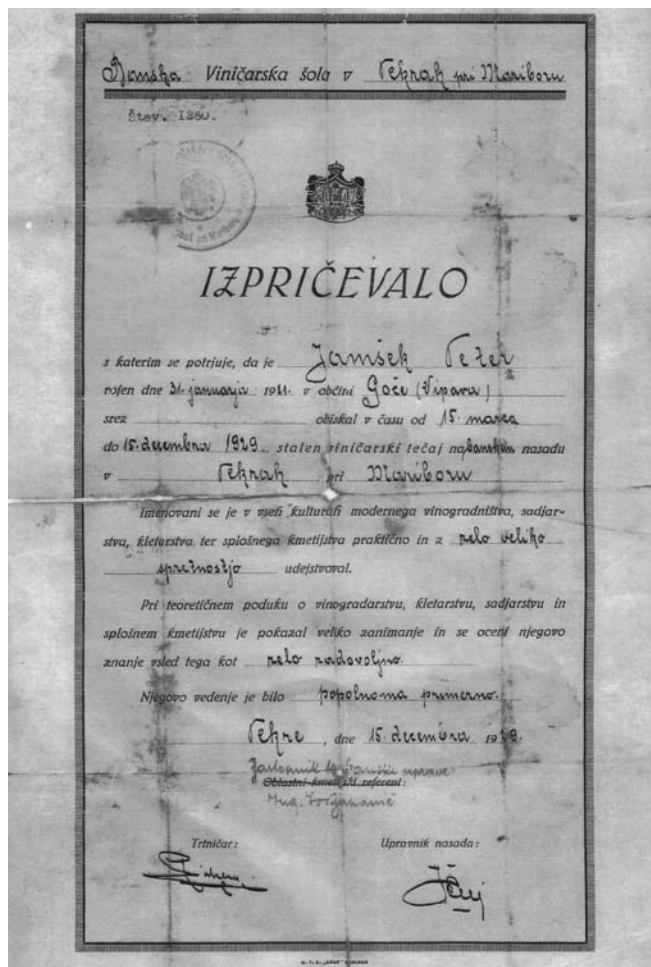 Banska Viničarska šola v Pekrah pri Mariboru
Štev. 1260.
IZPRIČEVALO
s katerim se potrjuje, da je Jamšek Peter
rojen dne 31. januarja 1911. v občini Goče (Vipava)
srez obiskal v času od 15. marca
do 15. decembra 1929. stalen viničarski tečaj na banskem nasadu
v Pekrah pri Mariboru
Imenovani se je v vseh kulturah modernega vinogradništva, sadjar-
stva, kletarstva ter splošnega kmetijstva praktično in z zelo veliko
spretnostjo udejstvoval.
Pri teoretičnem poduku o vinogradarstvu, kletarstvu, sadjarstvu in
splošnem kmetijstvu je pokazal veliko zanimanje in se oceni njegovo
znanje vsled tega kot zelo zadovoljno.
Njegovo vedenje je bilo popolnoma primerno.
Pekre, dne 15. decembra 1929.
Zastopnik banske uprave
Oblastni kmetijski referent:
Ing.
Trtničar: Upravnik nasada: